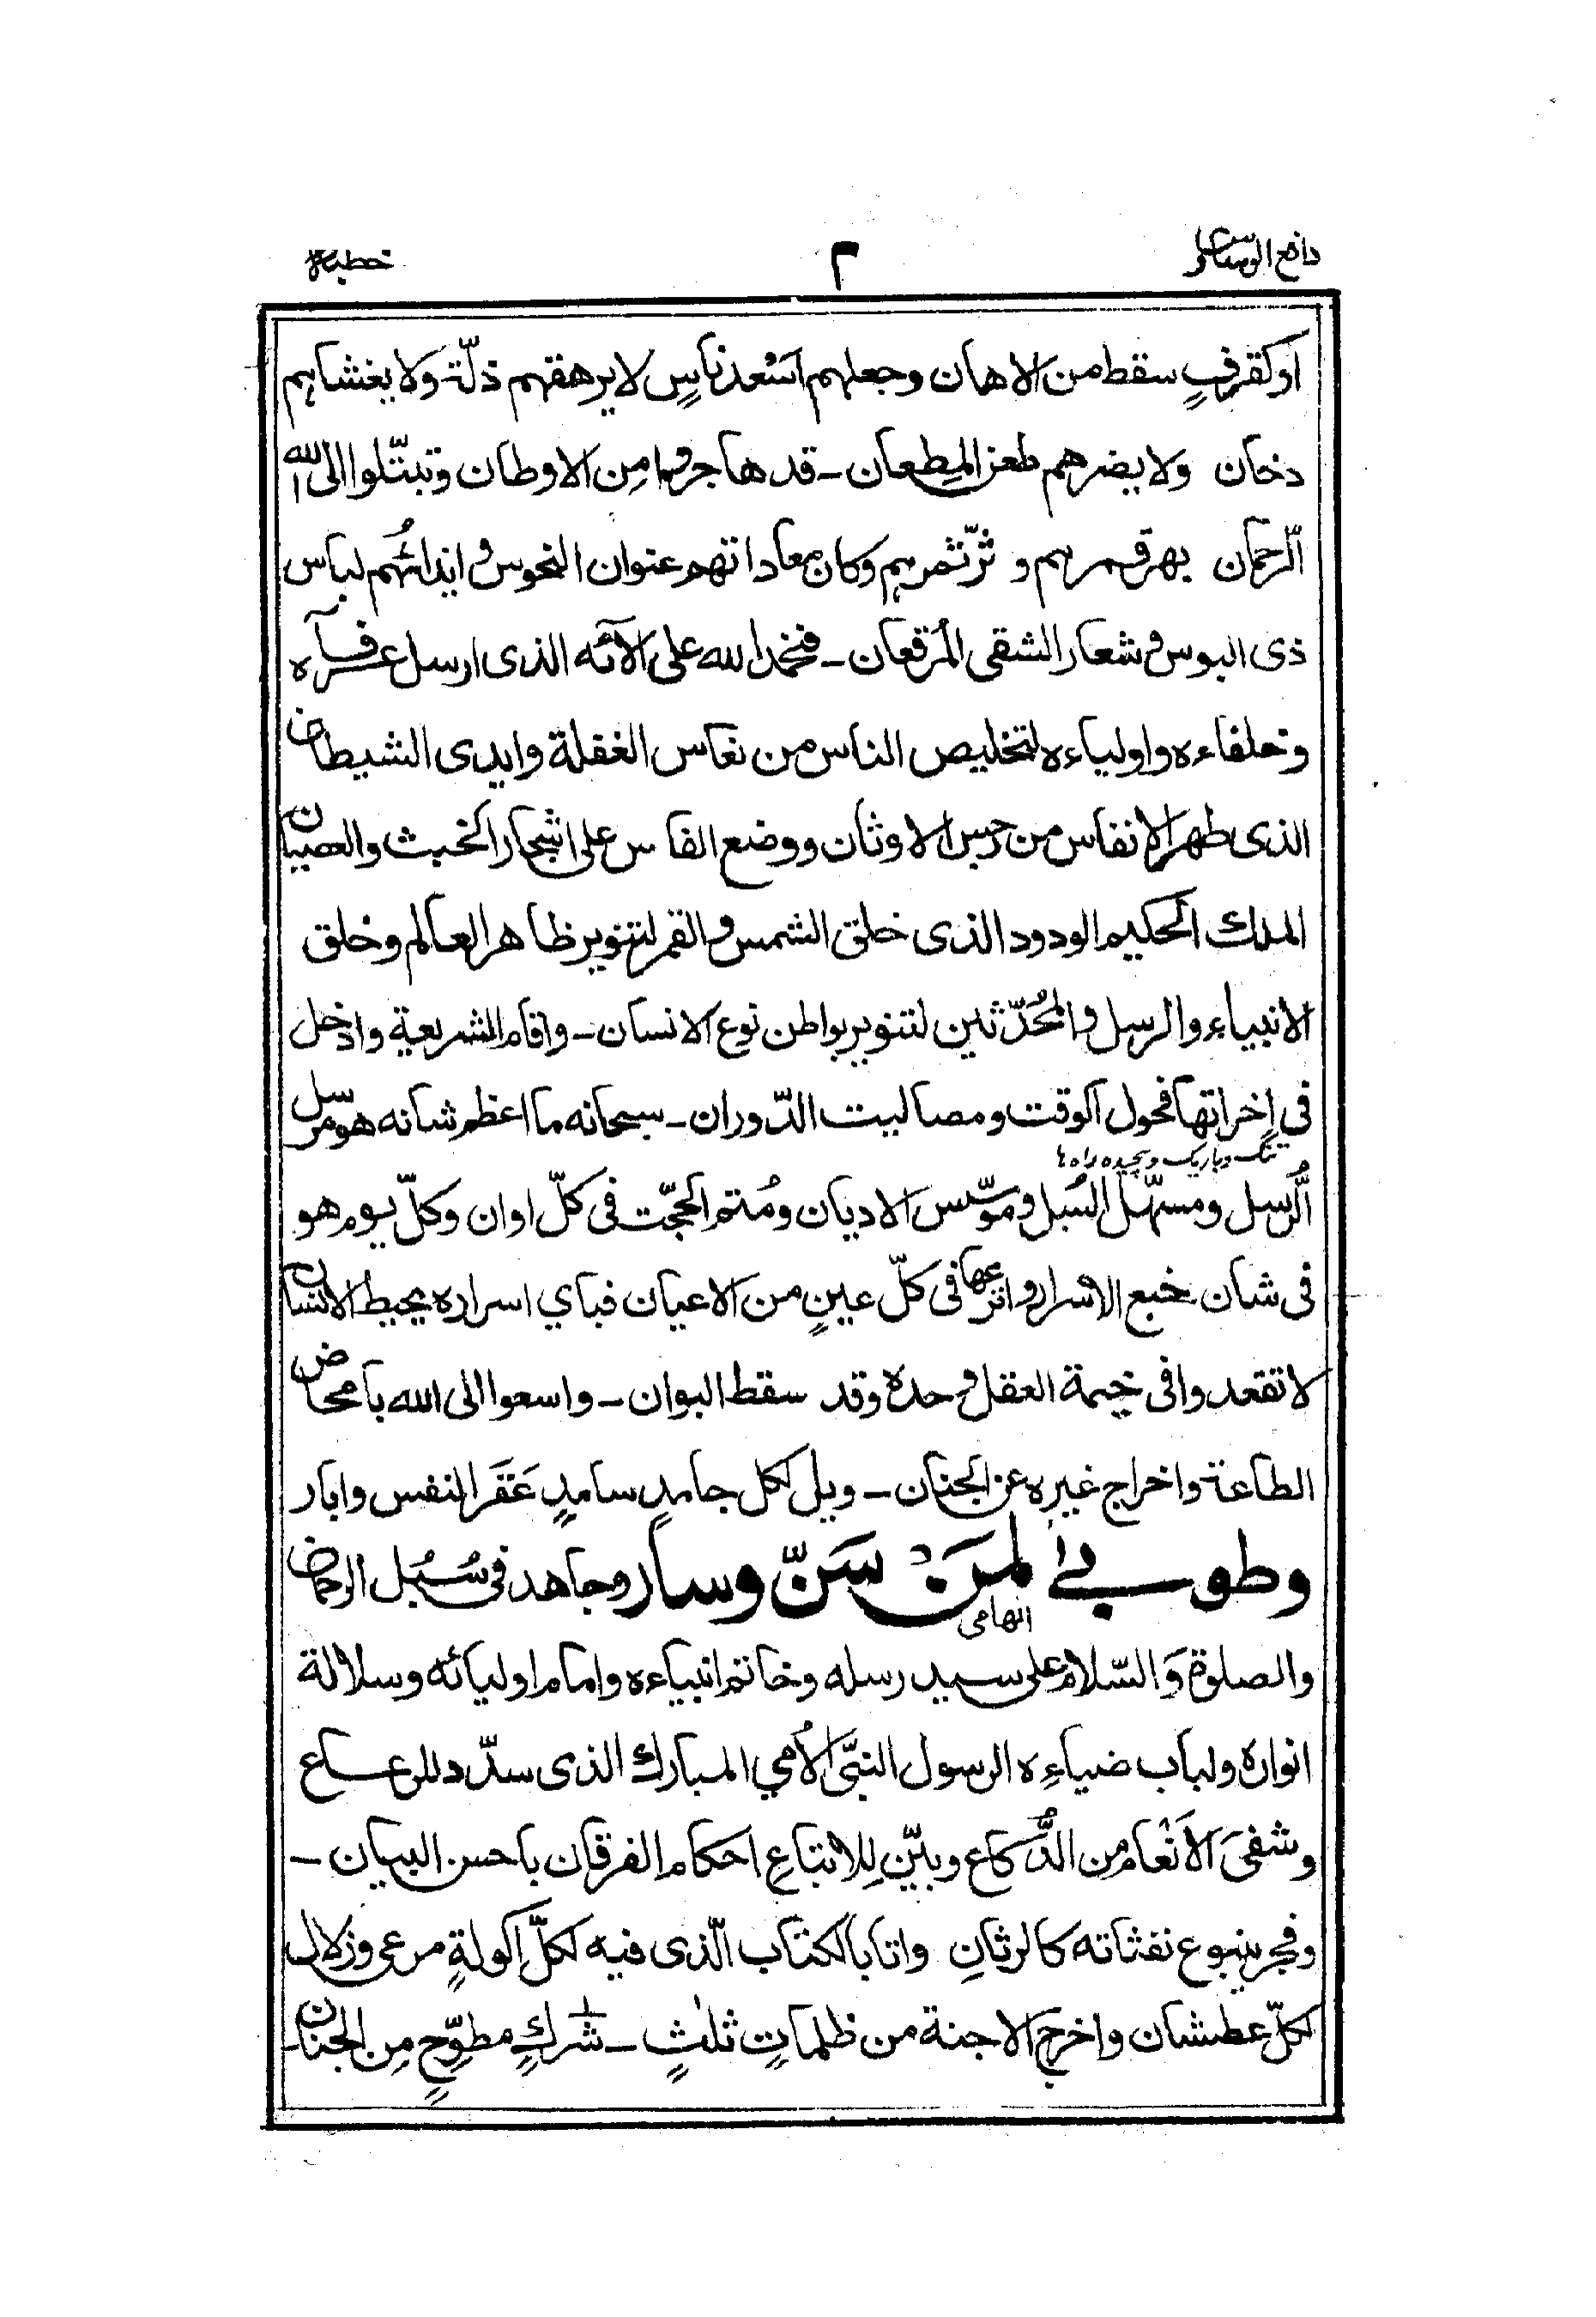 دافع الوساوس
۲
خطبہ
اوكقرفٍ سقط من الاهان وجعلهم اسعد ناسٍ لا يرهقهم ذلّة ولا يغشاہم
دخان ولا يضرهم طعن المِطعان ـ قد هاجروا من الاوطان وتبتّلوا الى الله
الّرحمان بهر قمرہم و ثرّ ثمرہم وكان معاداتهم عنوان النحوس و ايذائُهم لباس
ذى البوس و شعار الشقى المُرقعان ـ فنحمد الله على آلائه الذى ارسل عرفآءه
وخلفاءه واولياءه لتخليص الناس من نعاس الغفلة وايدى الشيطان
الذى طهر الانفاس من رجس الاوثان ووضع الفاس على اشجار الخبث والعصيان
الملك الحكيم الودود الذى خلق الشمس والقمر لتنوير ظاهر العالم وخلق
الانبياء والرسل والمُحدّثين لتنوير بواطن نوع الانسان ـ واقام الشريعة وادخل
فى اِخراتها فحول الوقت ومصاليت الدّوران ـ سبحانه ما اعظم شانه هو مرسل
تنگ و باریک و پیچیدہ راہ ہا
الرُّسل ومسهّل السُبل ومؤسّس الاديان ومُتم الحجّت فى كلّ اوان وكلّ يوم هو
فى شان خبع الاسرار واترعها فى كلّ عينٍ من الاعيان فباي اسراره يحيط الانسان
لا تقعدوا فى خيمة العقل وحده وقد سقط البوان ـ واسعوا الى الله بامحاض
الطاعة واخراج غيره عن الجنان ـ ويل لكل جامدٍ سامدٍ عَقَر النفس وابار
وطوبىٰ لمن سَنّ وسار وجاهد فى سُبُل الرحمان
الهامی
والصلوة وَالسّلام على سيد رسله وخاتم انبياءه وامام اوليائه وسلالة
انواره ولباب ضياءِه الرسول النبّى الاُمي المبارك الذى سدّد للرعاع
وشفىَ الاَنْعام من الدُّكاع وبيّن لِلاتباعِ احكام الفرقان باحسن البيان ـ
وفجر ينبوع نفثاته كالرثانِ واتا بالكتاب الّذى فيه لكلّ اَكولةٍ مرعى وزلال
لكلّ عطشان واخرج الاجنة من ظلماتٍ ثلٰثٍ ـ شركٍ مطوّحٍ مِن الجنان